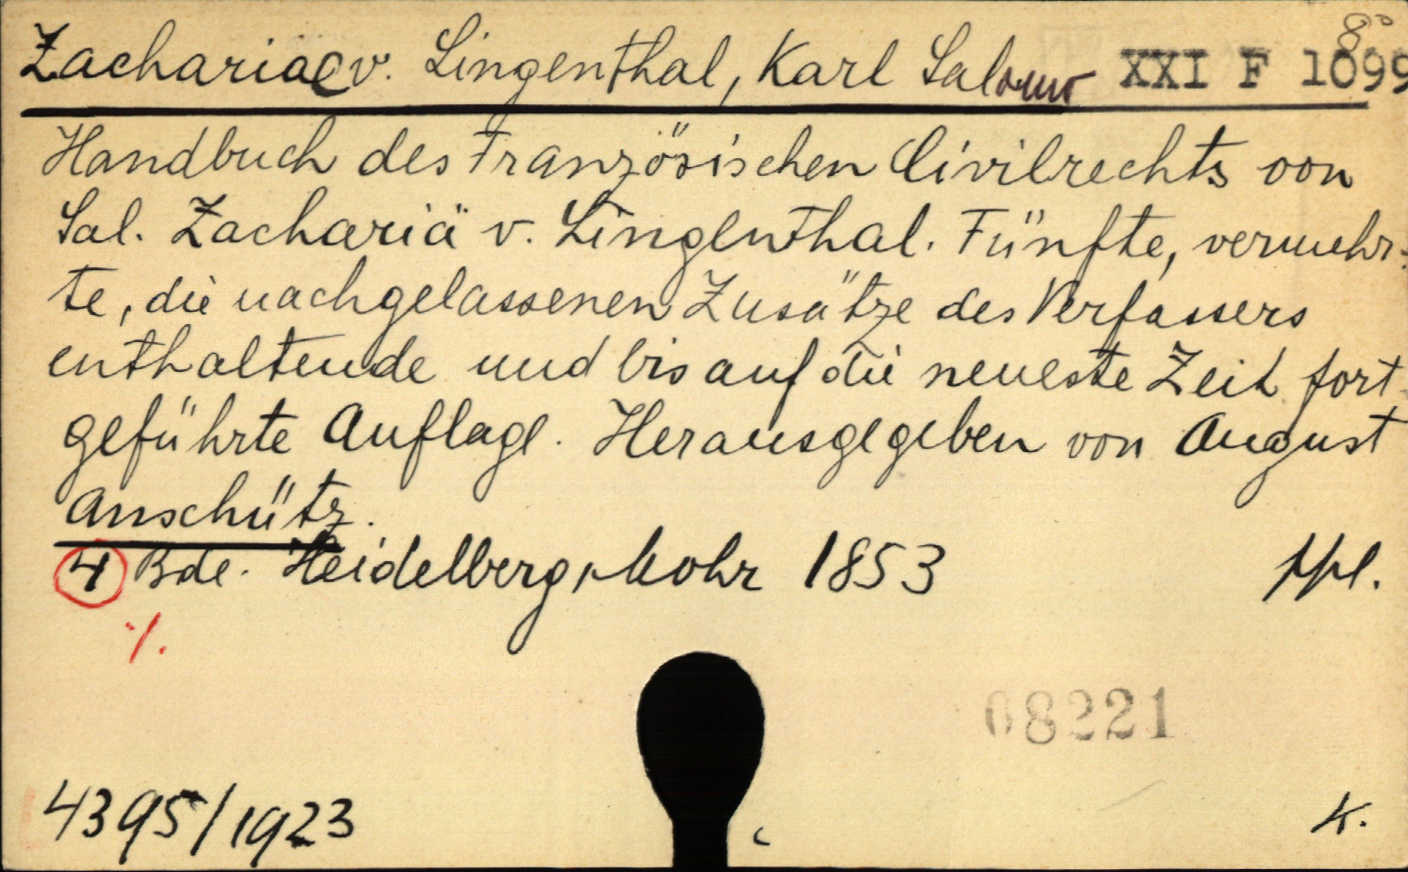 8°
Zachariae v. Lingenthal, Karl Salomo XXI F 1099
Handbuch des Französischen Civilrechts von
Sal. Zachariä v. Lingenthal. Fünfte, vermehr-
te, die nachgelassenen Zusätze des Verfassers
enthaltende und bis auf die neueste Zeit fort-
geführte Auflage. Herausgegeben von August
Anschütz.
4 Bde. Heidelberg, Mohr 1853
·/.
08221
4395/1923 K.